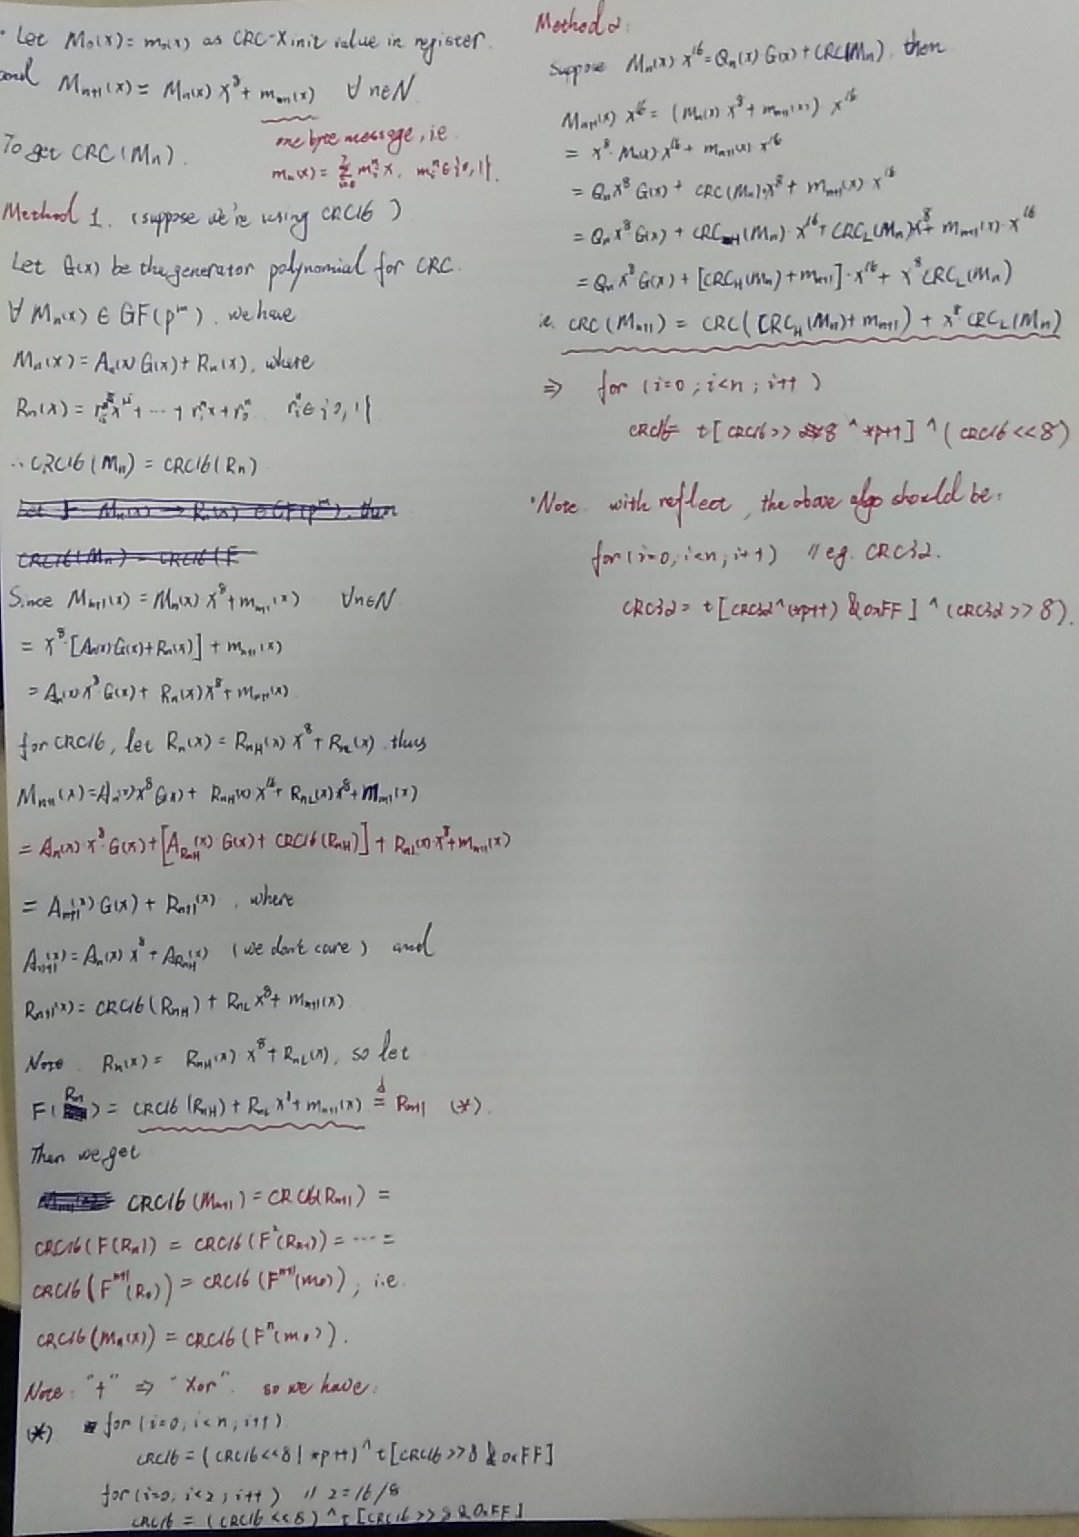 · Let M₀(x) = m₀(x) as CRC-X init value in register.
and Mₙ₊₁(x) = Mₙ(x) X⁸ + mₙ₊₁(x) ∀n∈N
one byte message, i.e.
To get CRC(Mₙ).
mₙ(x) = Σ⁷ᵢ₌₀ mᵢⁿ x, mᵢⁿ ∈ {0,1}.
Method 1. (suppose we're using CRC16)
Let G(x) be the generator polynomial for CRC.
∀ Mₙ(x) ∈ GF(pᵐ), we have
Mₙ(x) = Aₙ(x) G(x) + Rₙ(x), where
Rₙ(x) = r₁₅ⁿx¹⁵ + ⋯ + r₁ⁿx + r₀ⁿ rᵢⁿ ∈ {0,1}
∴ CRC16(Mₙ) = CRC16(Rₙ)
Since Mₙ₊₁(x) = Mₙ(x) X⁸ + mₙ₊₁(x) ∀n∈N
= X⁸·[Aₙ(x)G(x) + Rₙ(x)] + mₙ₊₁(x)
= Aₙ(x) X⁸ G(x) + Rₙ(x) X⁸ + mₙ₊₁(x)
for CRC16, let Rₙ(x) = RₙH(x) X⁸ + RₙL(x) thus
Mₙ₊₁(x) = Aₙ(x) X⁸ G(x) + RₙH(x) X¹⁶ + RₙL(x) X⁸ + mₙ₊₁(x)
= Aₙ(x)·X⁸·G(x) + [A_RₙH(x)·G(x) + CRC16(RₙH)] + RₙL(x)·X⁸ + mₙ₊₁(x)
= Aₙ₊₁(x) G(x) + Rₙ₊₁(x), where
Aₙ₊₁(x) = Aₙ(x) X⁸ + A_RₙH(x) (we don't care) and
Rₙ₊₁(x) = CRC16(RₙH) + RₙL X⁸ + mₙ₊₁(x)
Note. Rₙ(x) = RₙH(x)·X⁸ + RₙL(x), so let
F(Rₙ) = CRC16(RₙH) + RₙL X⁸ + mₙ₊₁(x) ≜ Rₙ₊₁ (*).
Then we get
CRC16(Mₙ₊₁) = CRC16(Rₙ₊₁) =
CRC16(F(Rₙ)) = CRC16(F²(Rₙ₋₁)) = ⋯ =
CRC16(Fⁿ⁺¹(R₀)) = CRC16(Fⁿ⁺¹(m₀)), i.e.
CRC16(Mₙ(x)) = CRC16(Fⁿ(m₀)).
Note: "+" ⇒ "Xor". so we have:
(*) for (i=0; i<n; i++)
CRC16 = (CRC16<<8 | *p++) ^ t[CRC16>>8 & 0xFF]
for (i=0; i<2; i++) // 2=16/8
CRC16 = (CRC16<<8) ^ t[CRC16>>8 & 0xFF]
Method 2:
Suppose Mₙ(x) X¹⁶ = Qₙ(x) G(x) + CRC(Mₙ), then
Mₙ₊₁(x) X¹⁶ = (Mₙ(x) X⁸ + mₙ₊₁(x)) X¹⁶
= X⁸·Mₙ(x) X¹⁶ + mₙ₊₁(x)·X¹⁶
= Qₙ X⁸ G(x) + CRC(Mₙ)·X⁸ + mₙ₊₁(x)·X¹⁶
= Qₙ X⁸ G(x) + CRC_H(Mₙ)·X¹⁶ + CRC_L(Mₙ) X⁸ + mₙ₊₁(x)·X¹⁶
= Qₙ X⁸ G(x) + [CRC_H(Mₙ) + mₙ₊₁]·X¹⁶ + X⁸ CRC_L(Mₙ)
i.e. CRC(Mₙ₊₁) = CRC(CRC_H(Mₙ) + mₙ₊₁) + X⁸ CRC_L(Mₙ)
⇒ for (i=0; i<n; i++)
CRC16 = t[CRC16>>8 ^ *p++] ^ (CRC16<<8)
·Note. with reflect, the above algo should be:
for (i=0; i<n; i++) // eg. CRC32.
CRC32 = t[CRC32^(*p++) & 0xFF] ^ (CRC32>>8).